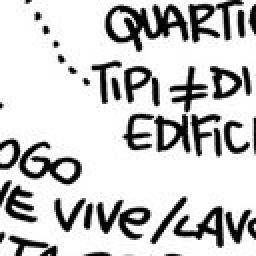 QUARTI
TIPI ≠ DI
EDIFIC
OGO
E VIVE/LAV